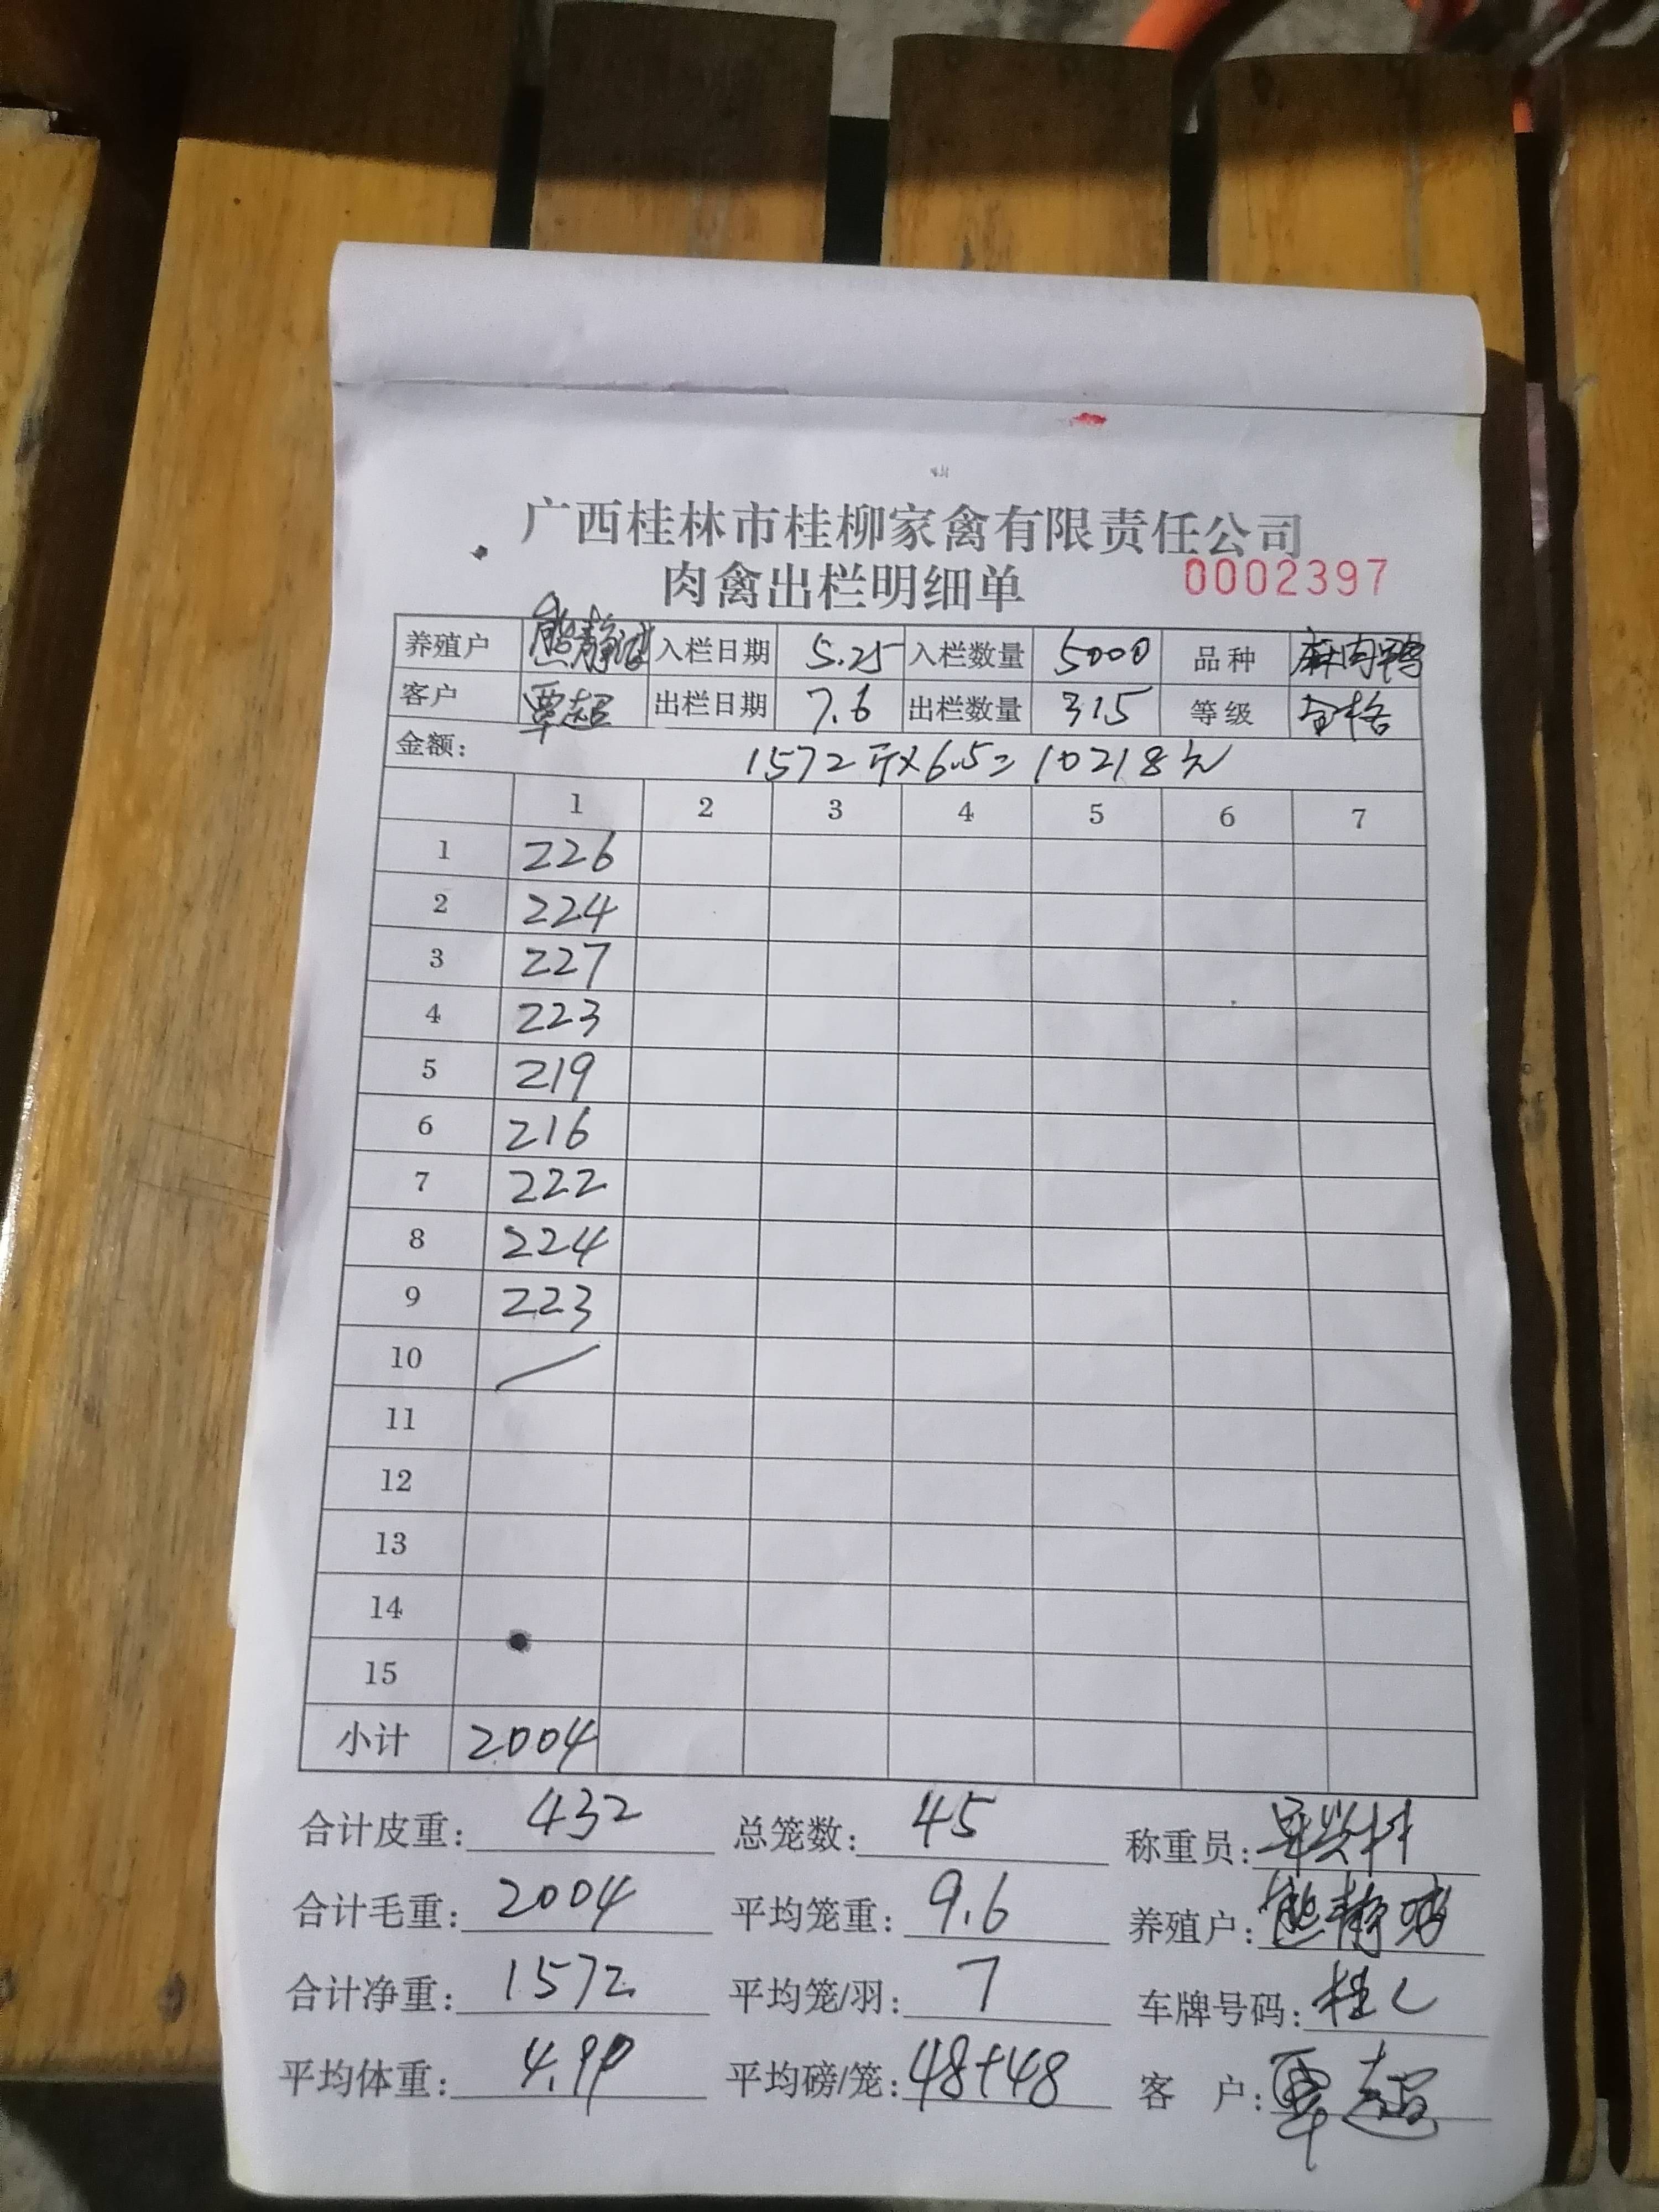 广西桂林市桂柳家禽有限责任公司
肉禽出栏明细单 0002397
养殖户 熊静 入栏日期 5.25 入栏数量 5000 品种 麻肉鸭
客户 覃超 出栏日期 7.6 出栏数量 315 等级 合格
金额: 1572斤×6.5=10218元
1 2 3 4 5 6 7
1 226
2 224
3 227
4 223
5 219
6 216
7 222
8 224
9 223
10
11
12
13
14
15
小计 2004
合计皮重: 432 总笼数: 45 称重员:
合计毛重: 2004 平均笼重: 9.6 养殖户: 熊静
合计净重: 1572 平均笼/羽: 7 车牌号码: 桂C
平均体重: 4.99 平均磅/笼: 48+48 客户: 覃超